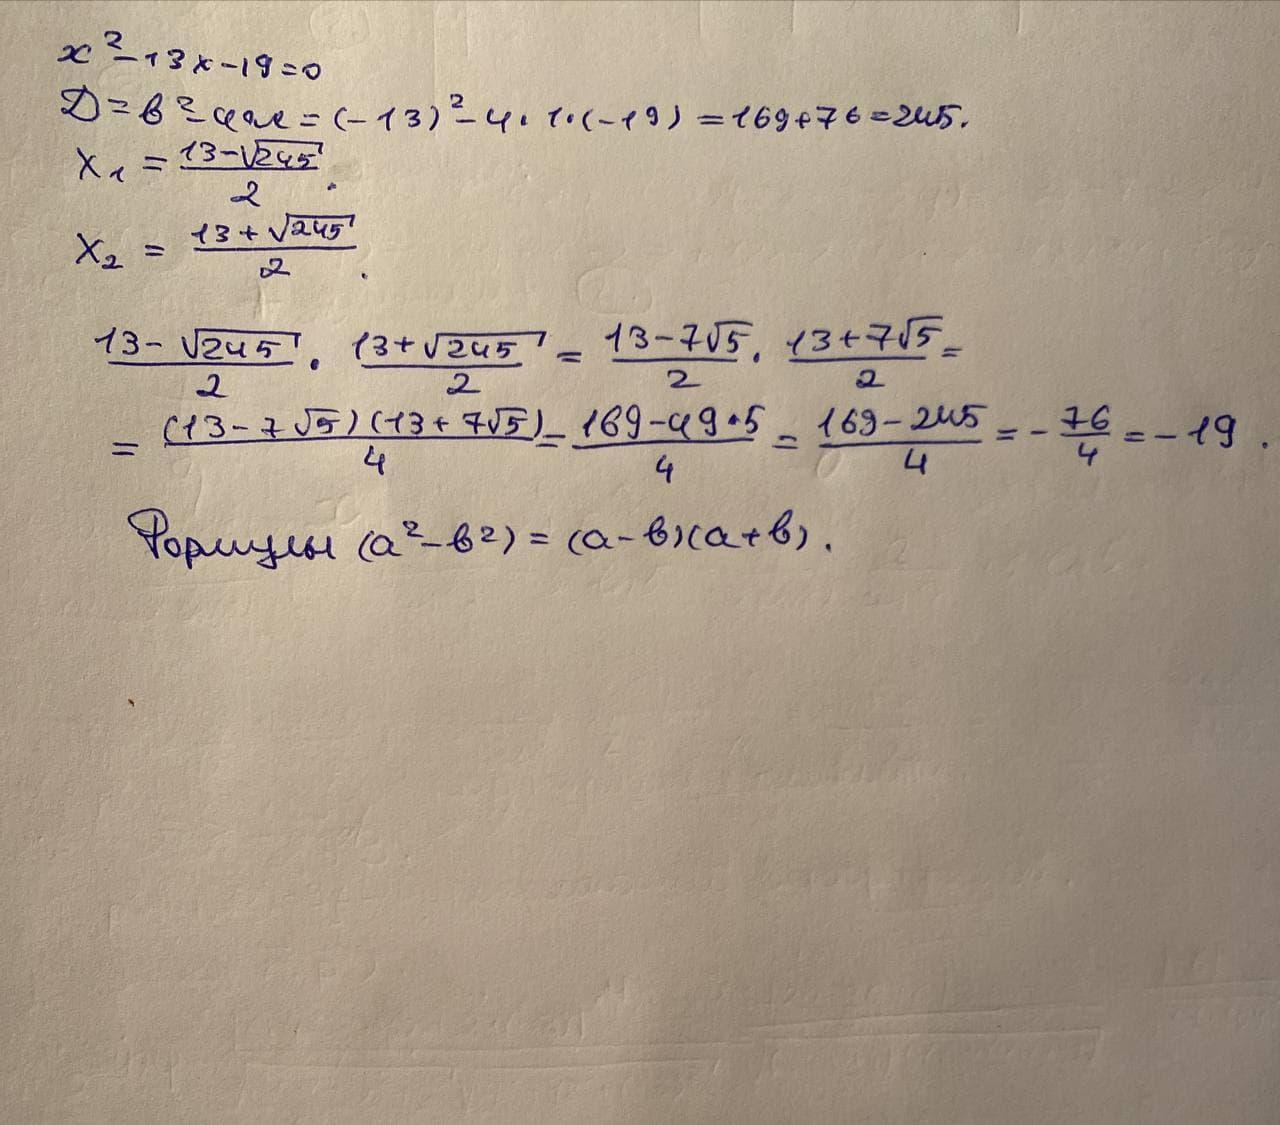 x² - 13x - 19 = 0
D = b² - 4ac = (-13)² - 4 · 1 · (-19) = 169 + 76 = 245.
x₁ = (13 - √245) / 2.
x₂ = (13 + √245) / 2.
(13 - √245) / 2 · (13 + √245) / 2 = (13 - 7√5) / 2 · (13 + 7√5) / 2 =
= (13 - 7√5)(13 + 7√5) / 4 = (169 - 49·5) / 4 = (169 - 245) / 4 = - 76 / 4 = -19.
Формулы (a² - b²) = (a - b)(a + b).